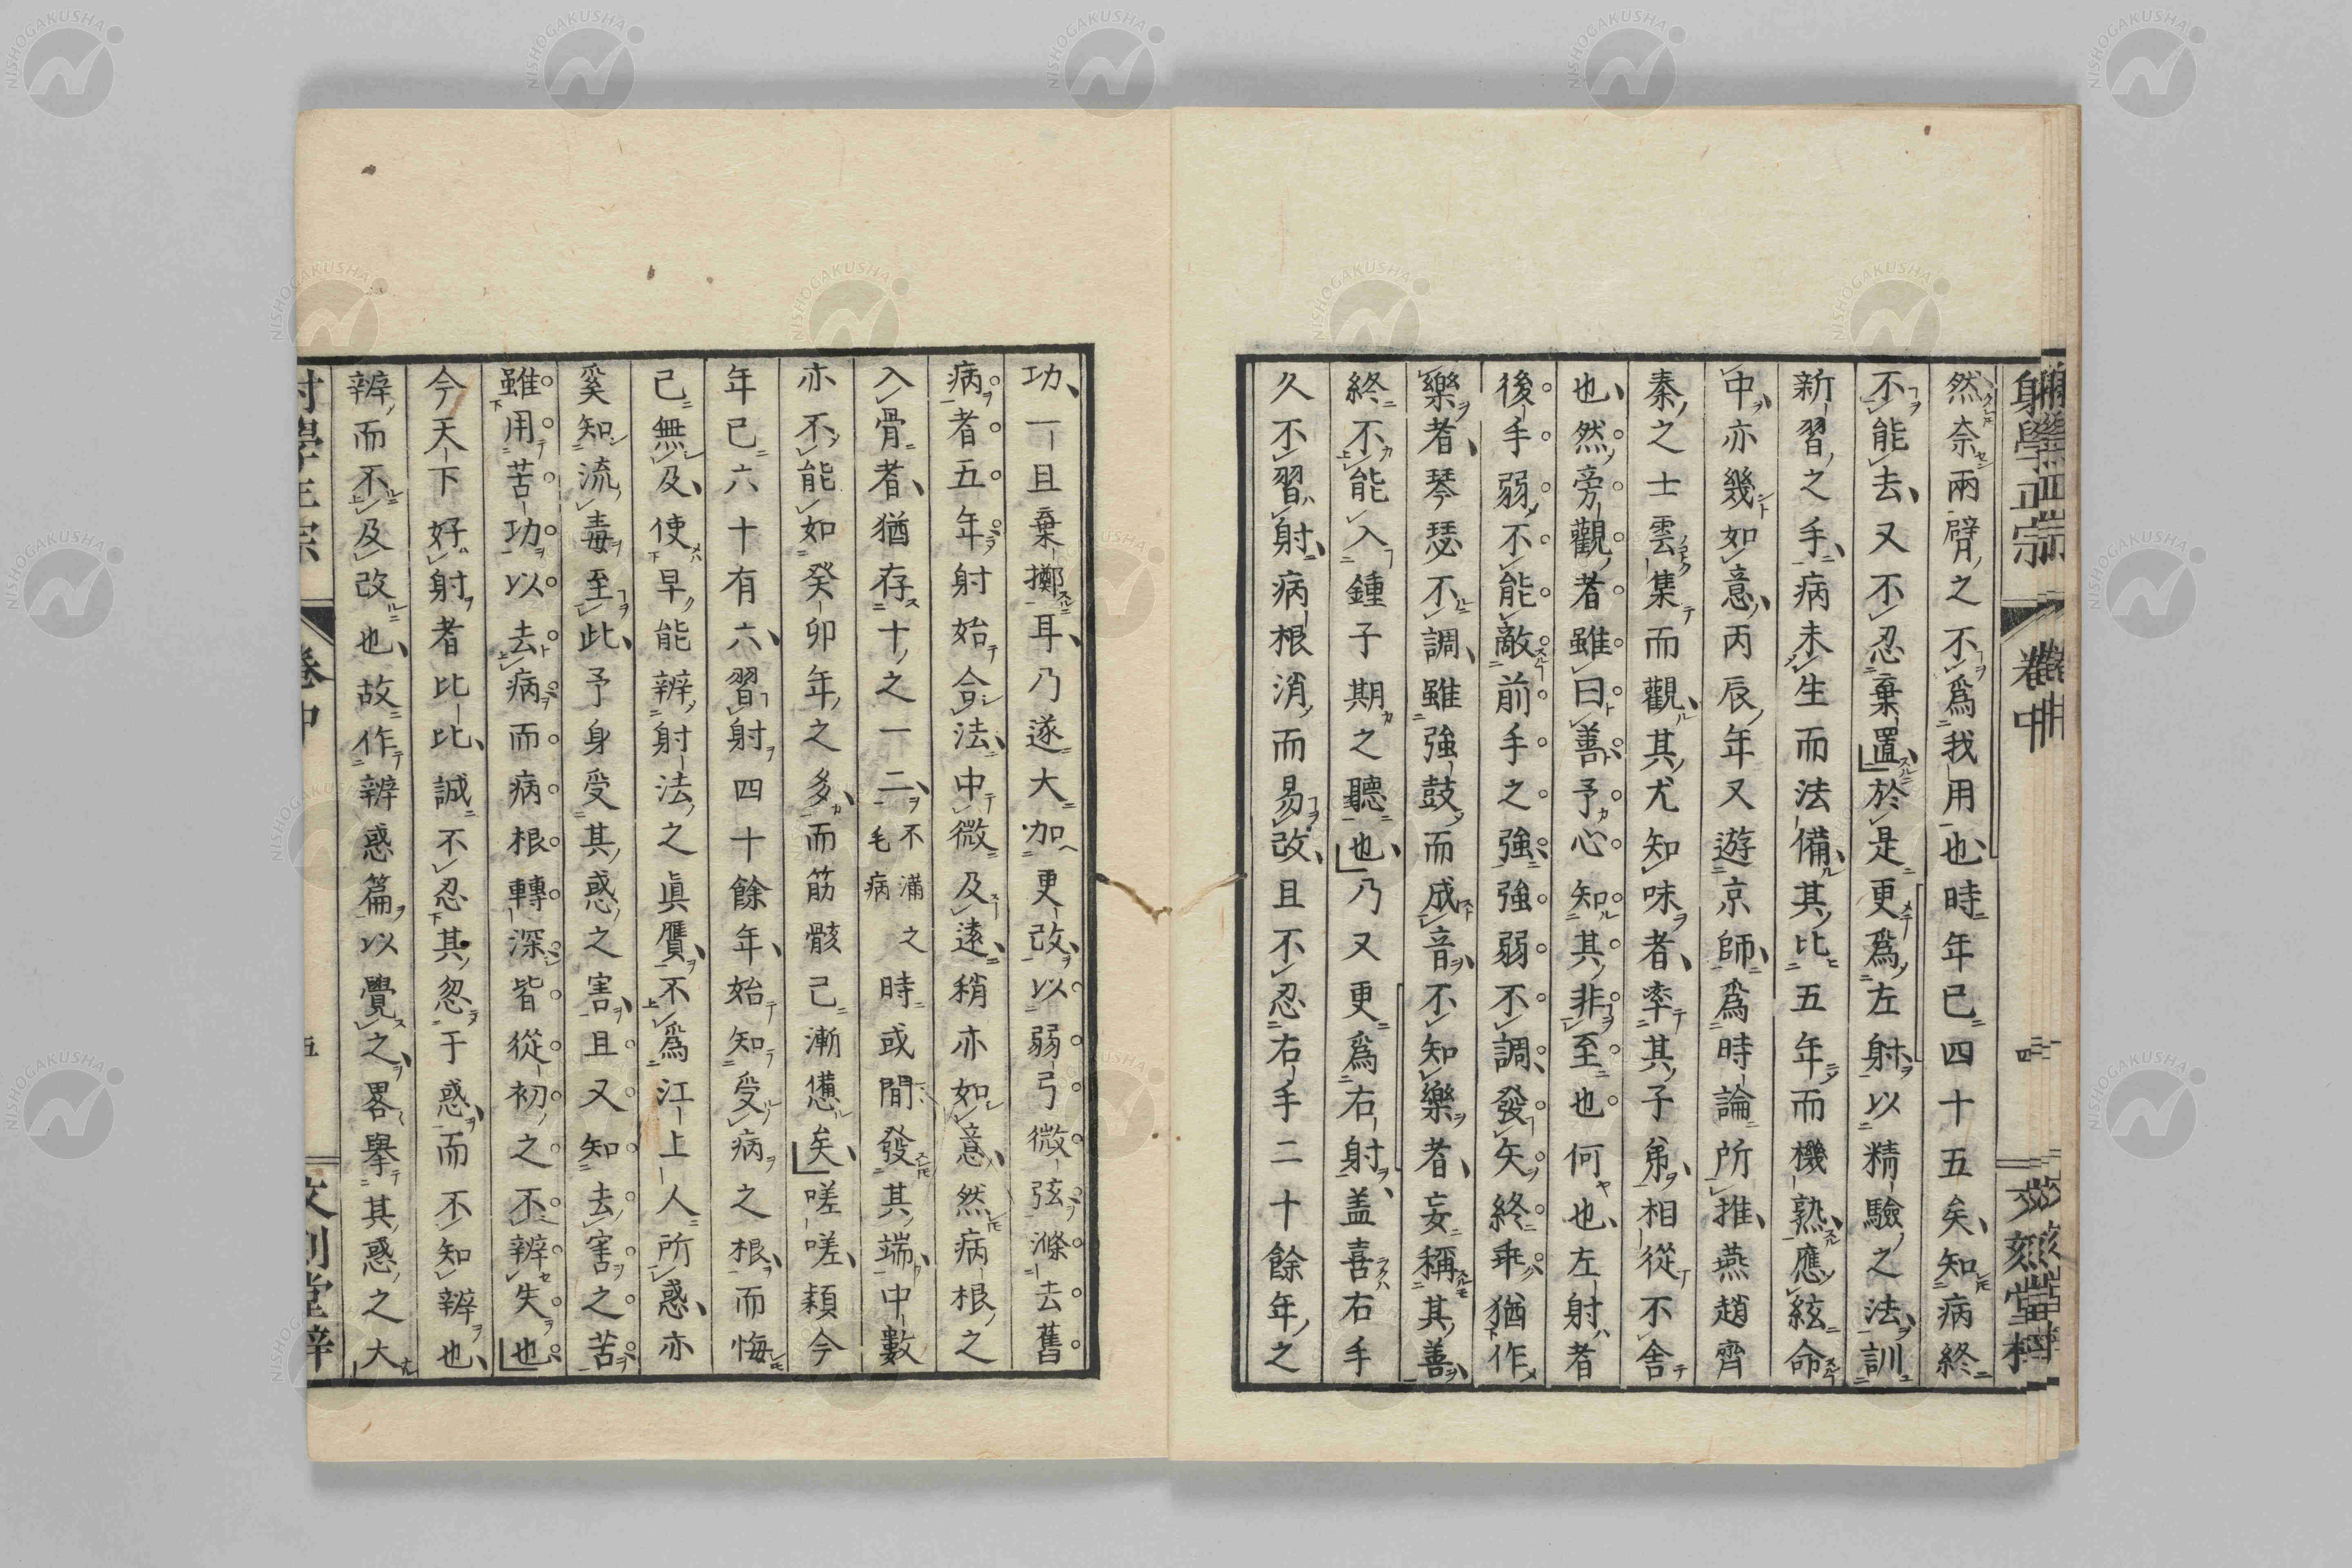 然奈兩臂之不爲我用也時年已四十五矣知病終
不能去又不忍棄置於是更爲左射以精驗之法訓
新習之手病未生而法備其比五年而機熟應絃命
中亦幾如意丙辰年又遊京師爲時論所推燕趙齊
秦之士雲集而觀其尤知味者率其子弟相從不舍
也然旁觀者雖曰善予心知其非至也何也左射者
後手弱不能敵前手之強強弱不調發矢終乖猶作
樂者琴瑟不調雖強鼓而成音不知樂者妄稱其善
終不能入鍾子期之聽也乃又更爲右射盖喜右手
久不習射病根消而易改且不忍右手二十餘年之
功一旦棄擲耳乃遂大加更改以弱弓微弦滌去舊
病者五年射始合法中微及遠稍亦如意然病根之
入骨者猶存十之一二不滿之毛病時或間發其端中數
亦不能如癸卯年之多而筋骸已漸憊矣嗟嗟頼今
年已六十有六習射四十餘年始知受病之根而悔
已無及使早能辨射法之眞贋不爲江上人所惑亦
奚知流毒至此予身受其惑之害且又知去害之苦
雖用苦功以去病而病根轉深皆從初之不辨失也
今天下好射者比比誠不忍其忽于惑而不知辨也
辨而不及改也故作辨惑篇以覺之畧舉其惑之大
射學正宗 卷中 五